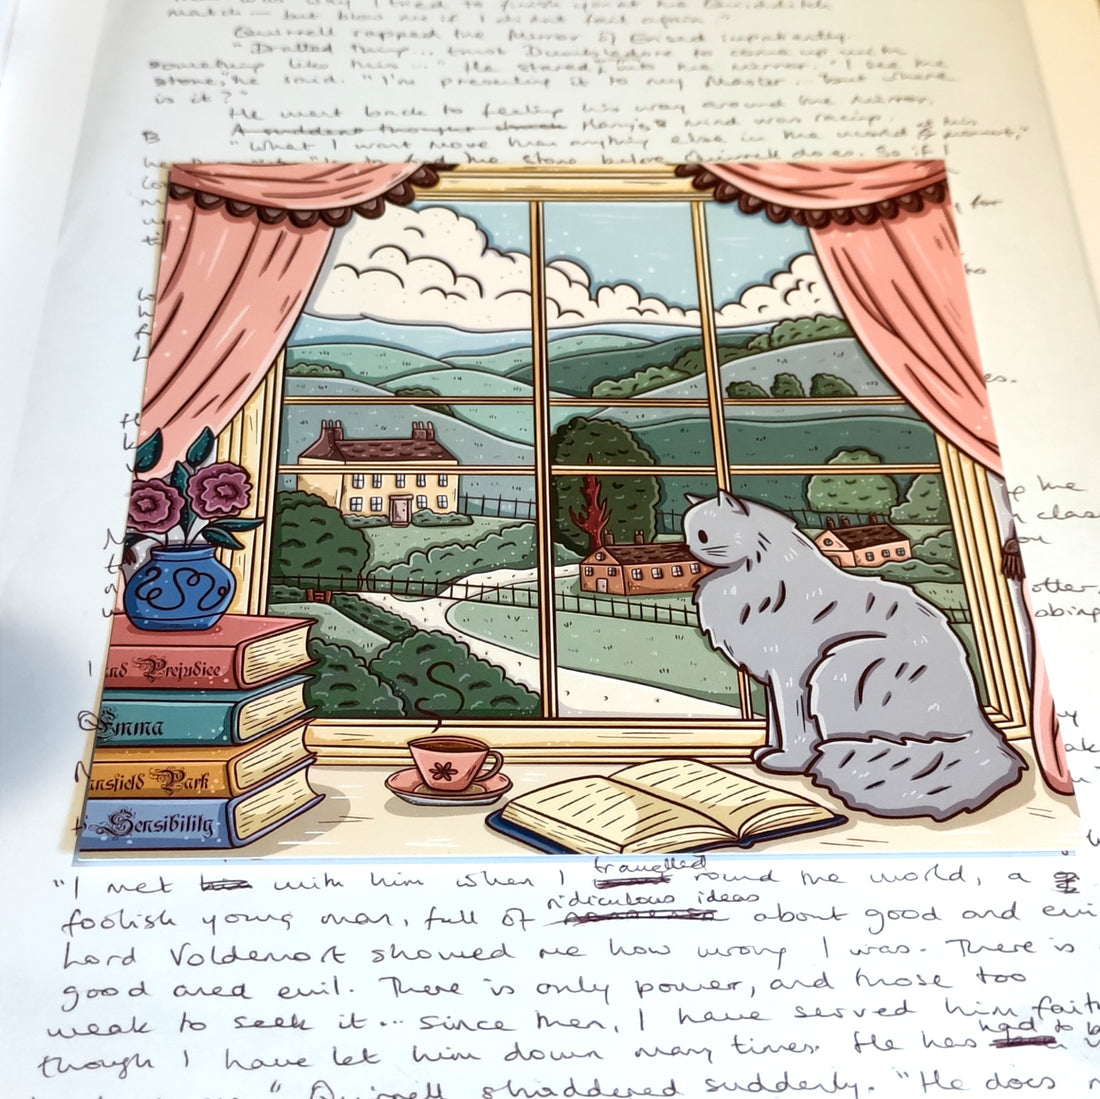 match — but blow me if I didn't fail again."
Quirrell rapped the Mirror of Erised impatiently.
"Dratted thing... trust Dumbledore to come up with
something like this..." He stared into the mirror. "I see the
stone," he said. "I'm presenting it to my Master... but where
is it?"
He went back to feeling his way around the mirror.
A sudden thought struck Harry's mind was racing. at this
"What I want more than anything else in the world moment,"
find the stone before Quirrell does. So if I
for
es.
the
class
you
otter,
and Prejudice
Emma
ansfield Park
& Sensibility
travelled
"I met with him when I round the world, a
ridiculous ideas
foolish young man, full of about good and evi
Lord Voldemort showed me how wrong I was. There is
good and evil. There is only power, and those too
weak to seek it... Since then, I have served him fait
had to b
though I have let him down many times. He has
" Quirrell shuddered suddenly. "He does